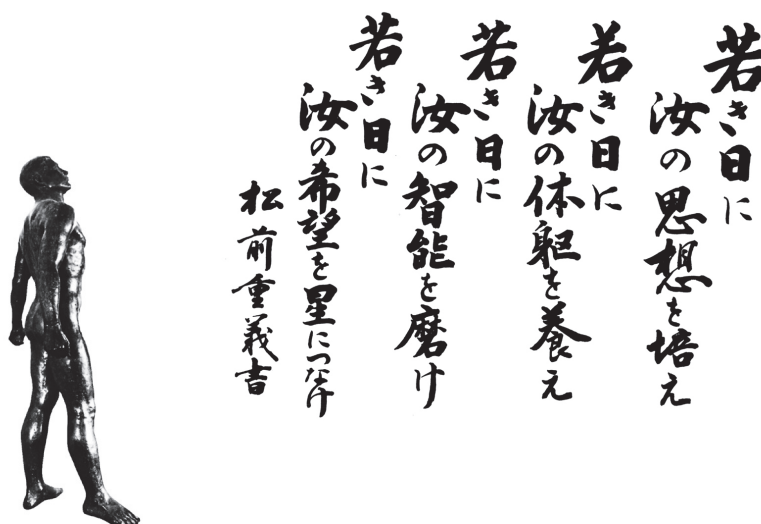 若き日に
汝の思想を培え
若き日に
汝の体躯を養え
若き日に
汝の智能を磨け
若き日に
汝の希望を星につなけ
松前重義書